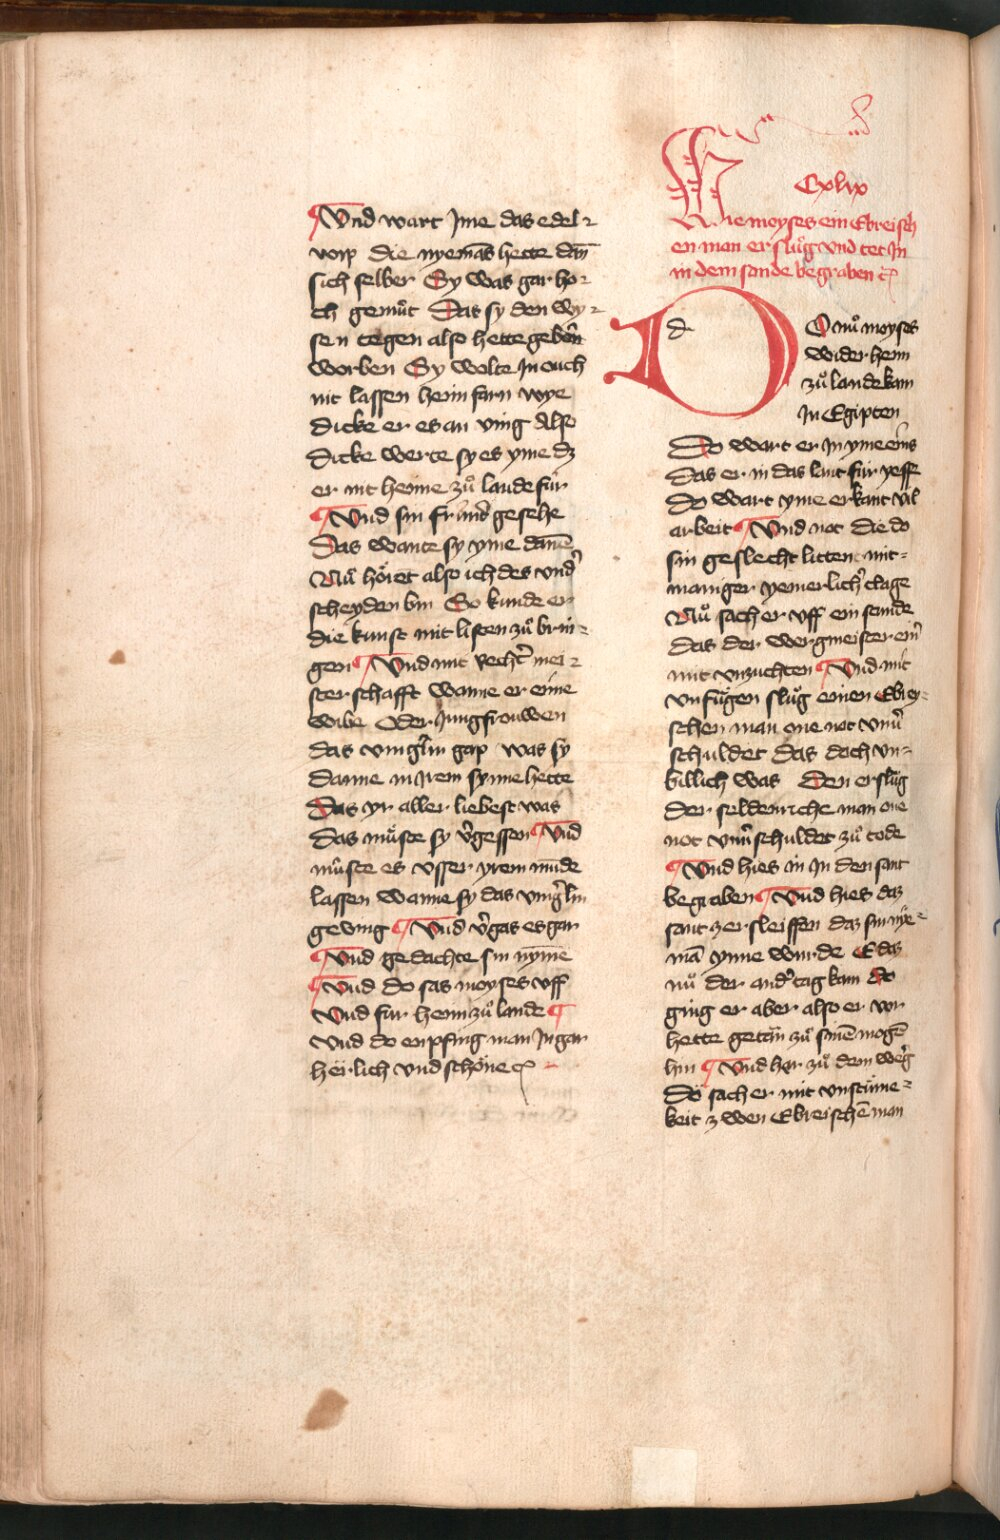 ¶Und wart Jme das edel-
wip die nyemās hette dan̄
sich selber Sy was gar ho-
ch gemůt Das sy den wy-
sen tegen also hette geborn
worben Sy wolte Jn ouch
nit lassen heim farn wye
dicke er es an ving Also
dicke werte sy es yme dz
er nit heime zů lande für
¶Und sin frūnd gesehe
Das wante sy yme dañe
Nů hörēt also ich des vnd'
scheyden bin So kunde er
die kunst mit listen zů brin-
gen ¶Und mit recht' mei-
sterschafft wanne er eime
wibe oder Jungfrouwen
das ving'lin gap was sy
danne in Jrem synne hette
Das yr aller liebest was
das můste sy v'gessen ¶Und
můste es vsser yrem munde
lassen wanne sy das ving'lin
geving ¶Und v'gas es gar
¶Und gedachte sin nyme
¶Und do sas moyses vff
Und fur heim zů lande ¶
Und do enpfing man Jn gar
herlich vnd schöne
Cxlix
Wie moyses ein Ebreisch
en man erslůg vnd tet Jn
in dem sande begraben
d
DO nů moyses
wider heim
zů lande kam
Jn Egipten
Do wart er Jn yme eins
Das er in das lant für reisse
Do wart yme erkant vil
arbeit ¶Und not die do
sin geslecht litten mit-
maniger yemerlich' clage
Nů sach er vff ein stunde
das der wergmeister ein'
mit vnzuchten ¶Und mit
vnfůgen slůg einen Ebrey-
schen man one not vnu'
schuldet das doch vn-
billich was Den erslůg
der seldenriche man one
not vnu'schuldet zů tode
¶Und hies in Jn den sant
begraben ¶Und hies daz
sant zersleiffen daz sin nye-
mā ynne wurde E das
nů der and' tag kam Do
ging er aber also er vor
hette getän zů sinē mogē
hin ¶Und har zů dem werg
Do sach er mit vnstüme-
keit zwen Ebreischē man